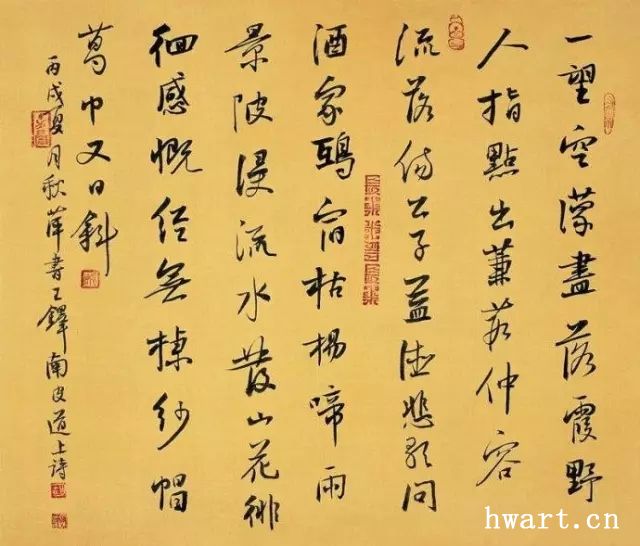 一望空濛盡落霞野
人指點出蒹葭仲容
流落傷公子益德悲歌問
酒家鵶宿枯楊啼雨
景陂浸流水發山花徘
徊感慨經無棣紗帽
葛巾又日斜
丙戌夏月秋萍書王鐸南皮道上詩
hwart.cn